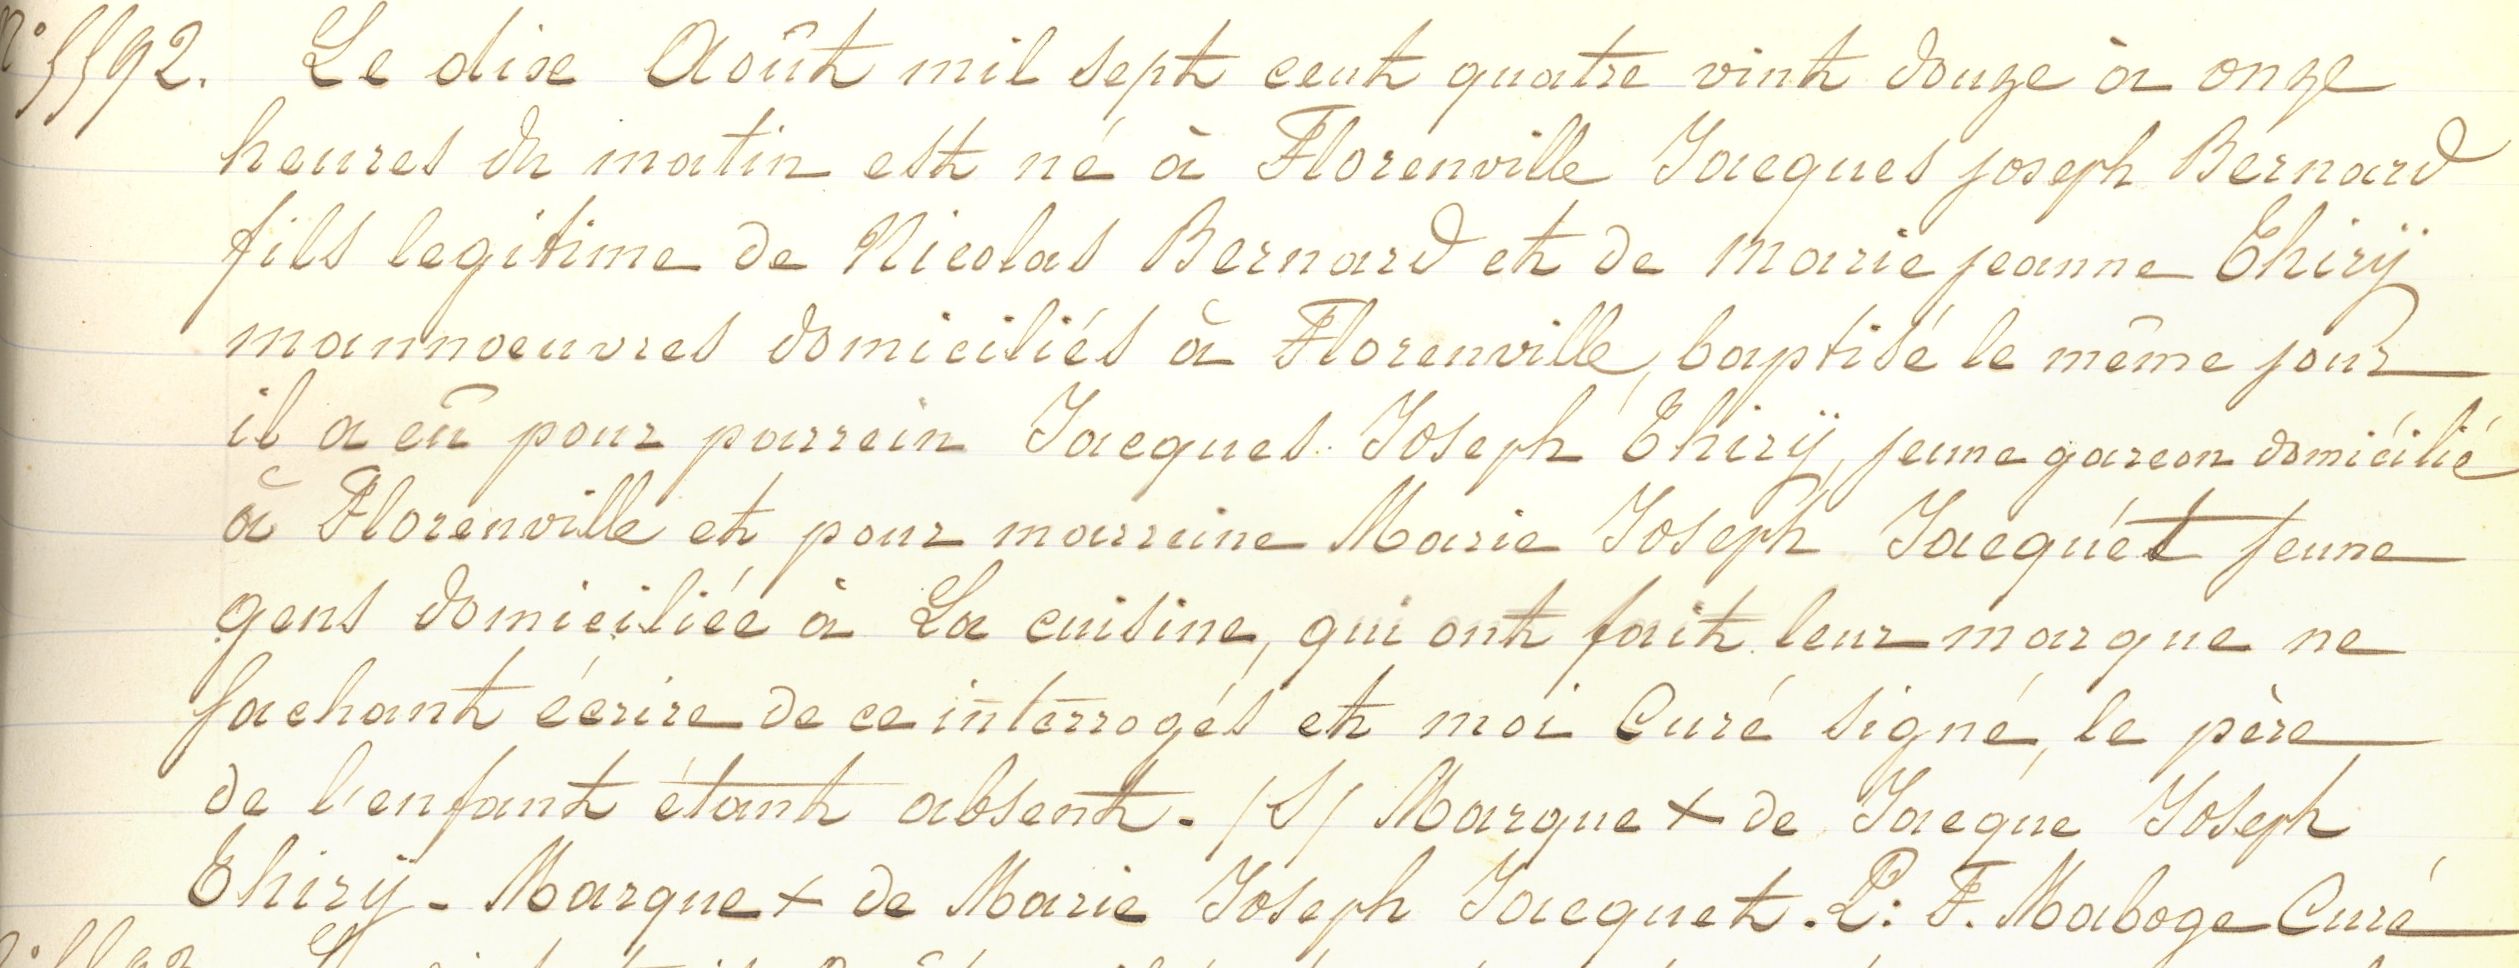 N° 5592. Le dixe Août mil sept cent quatre vint douze à onze
heures du matin est né à Florenville Jacques joseph Bernard
fils legitime de Nicolas Bernard et de marie jeanne Thirÿ
mannoeuvres domiciliés à Florenville, baptisé le même jour
il a eû pour parrein Jacques Joseph Thirÿ, jeune garcon domicilié
à Florenville et pour marreine Marie Joseph Jacquét jeune
gens domiciliée à La cuisine, qui ont fait leur marque ne
sachant écrire de ce interrogés et moi Curé signé, le père
de l'enfant étant absent. /S/ Marque + de Jacque Joseph
Thirÿ - Marque + de Marie Joseph Jacquet. P: F. Maboge Curé